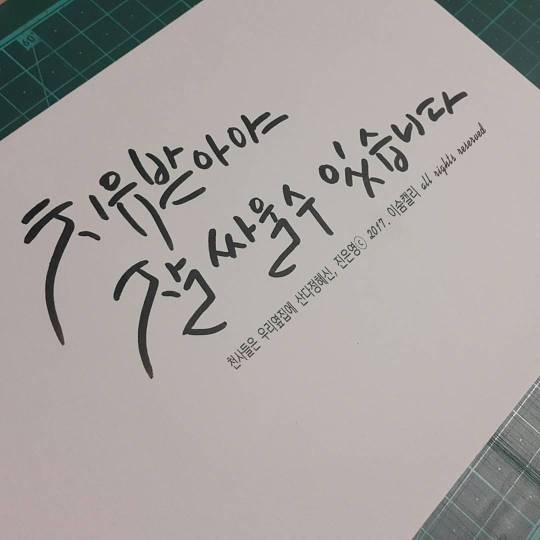 치유받아야
잘 싸울 수 있습니다
천사들은 우리옆집에 산다정혜신, 진은영ⓒ 2017. 이숨캘리 all rights reserved